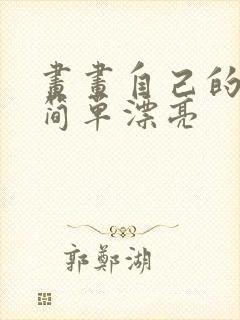 畫畫自己的
简单漂亮
郭鄭湖